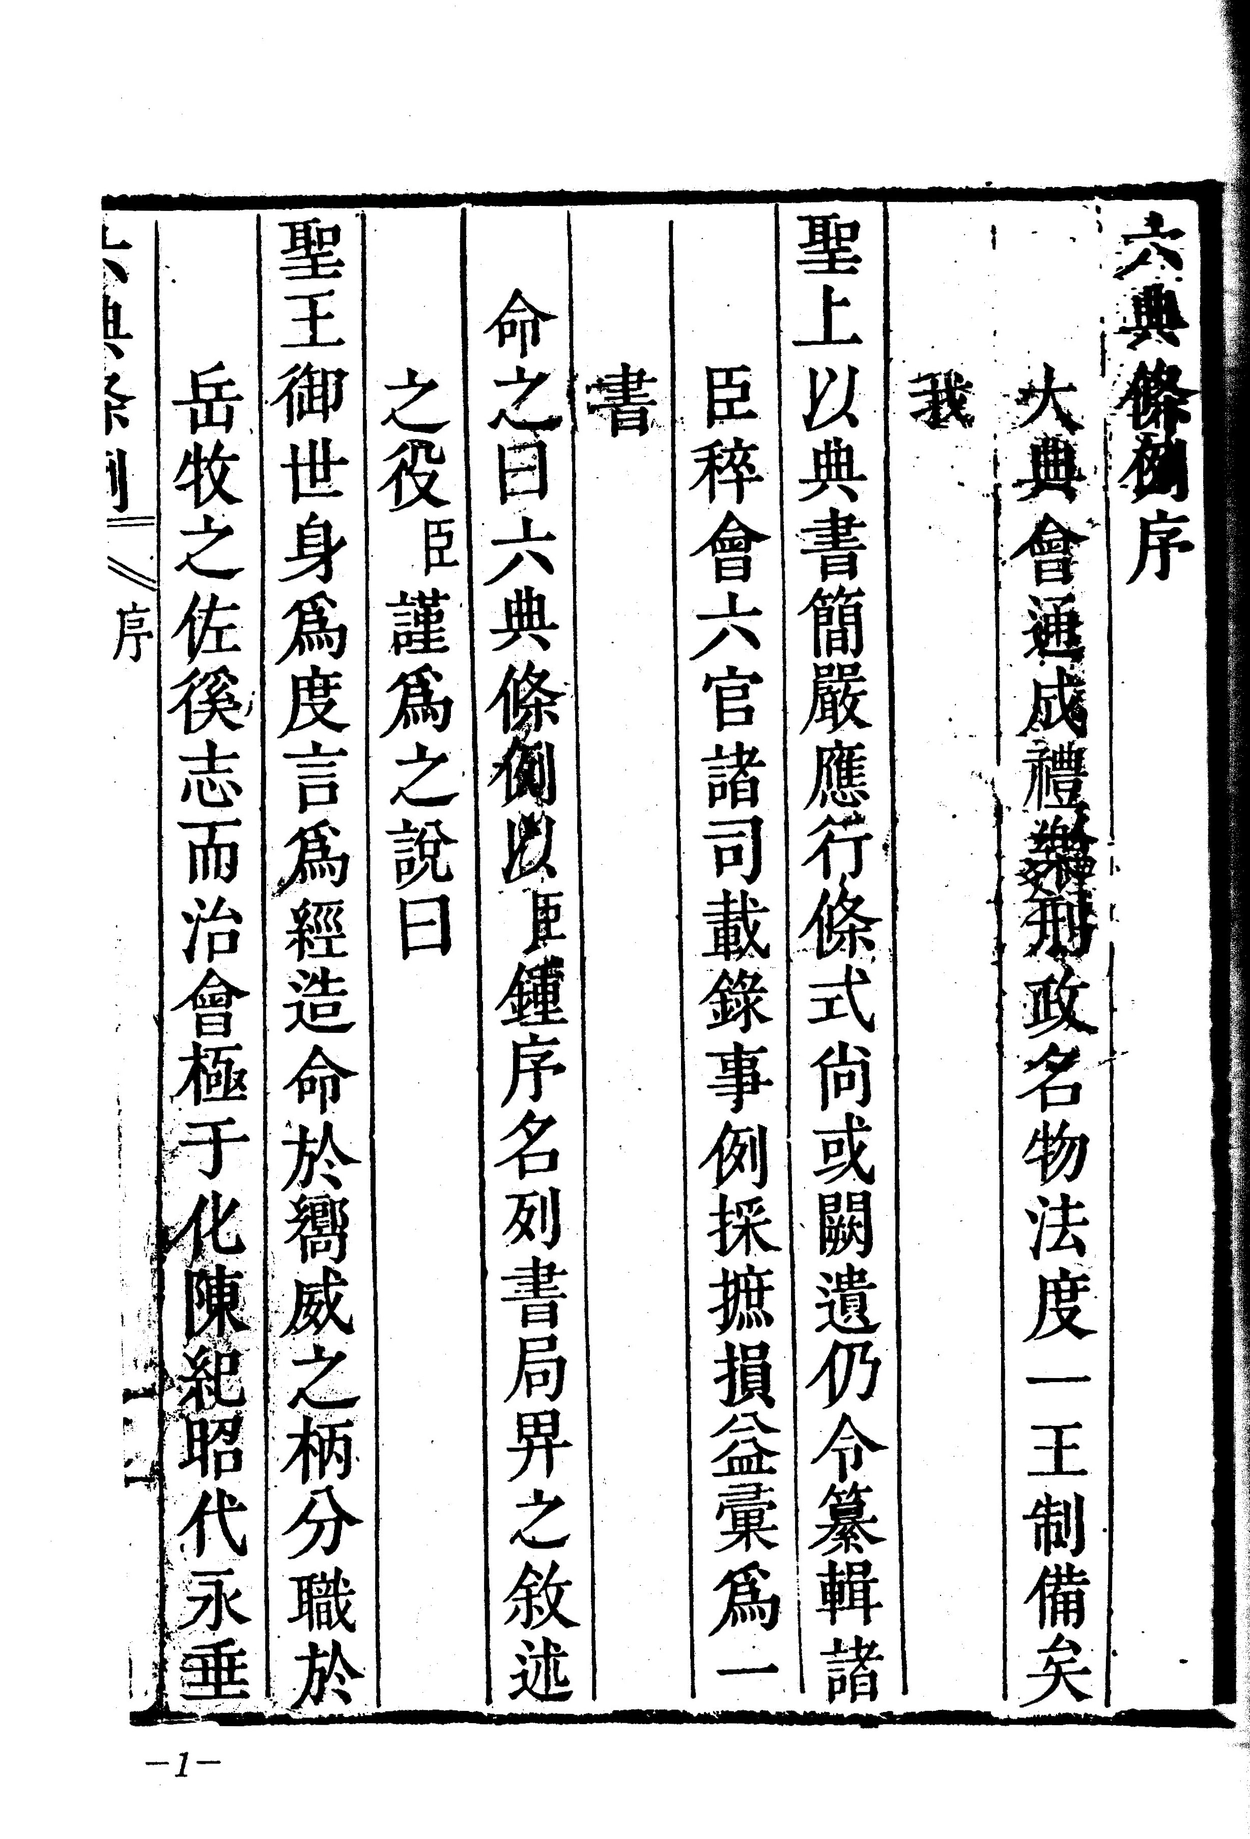 六典條例序
大典會通成禮樂刑政名物法度一王制備矣
我
聖上以典書簡嚴應行條式尙或闕遺仍令纂輯諸
臣稡會六官諸司載錄事例採摭損益彙爲一
書
命之曰六典條例以臣鍾序名列書局畀之敘述
之役臣謹爲之說曰
聖王御世身爲度言爲經造命於嚮威之柄分職於
岳牧之佐徯志而治會極于化陳紀昭代永垂
六典條例
序
一
-1-